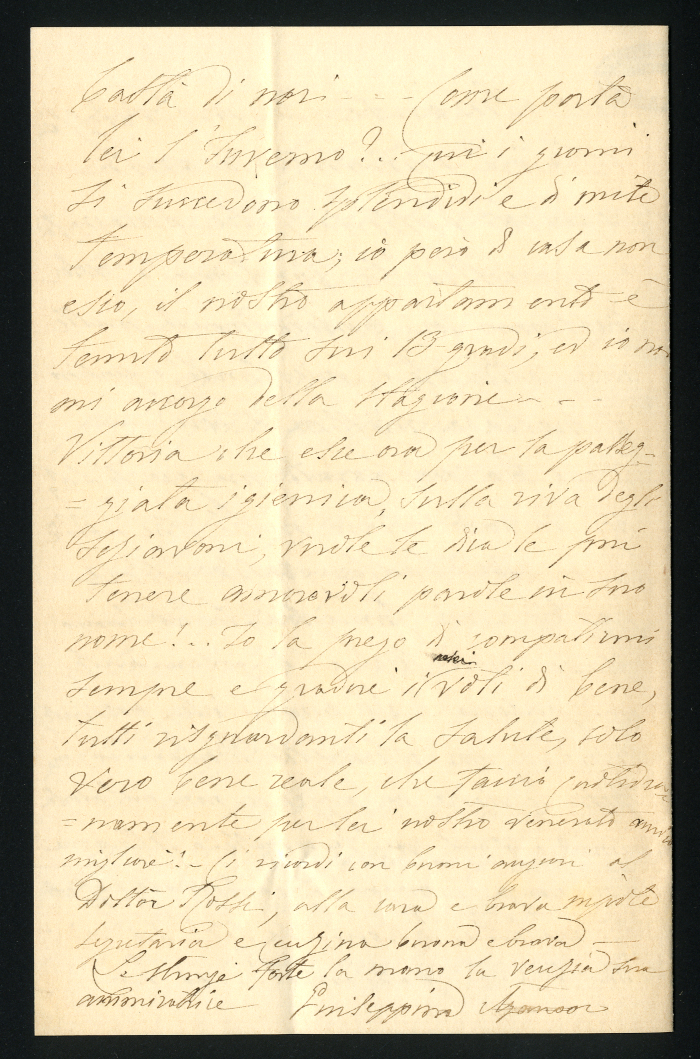 bontà di noi - - - Come porta
lei l'inverno?.. qui i giorni
si succedono splendidi e di mite
temperatura; io però di casa non
esco, il nostro appartamento è
tenuto tutto sui 13 gradi, ed io non
mi accorgo della stagione - - -
Vittoria che esce ora per la passeg-
=giata igienica, sulla riva degli
Schiavoni, vuole le dica le più
tenere amorevoli parole in suo
nome!.. Io la prego di compatirmi
sempre e gradire i nostri voti di bene,
tutti risguardanti la salute, solo
vero bene reale, che faccio quotidia-
=namente per lei nostro venerato amico
migliore! - Ci ricordi con buoni auguri al
Dottor Rossi, alla cara e brava nipote
segretaria e cugina buona e brava -
Le stringe forte la mano la vecchia sua
ammiratrice Giuseppina